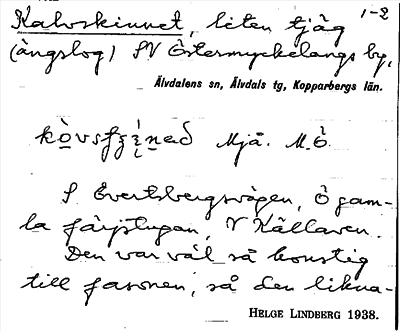 Kalvskinnet, liten tjåg 1-2
(ängslog) SV Östermyckelängs by,
Älvdalens sn, Älvdals tg, Kopparbergs län.
Mjä. M.Ö.
S Evertsbergsvägen, Ö gam-
la färjstugan, V Källaren.
Den var väl så konstig
till fasonen, så den likna-
HELGE LINDBERG 1938.